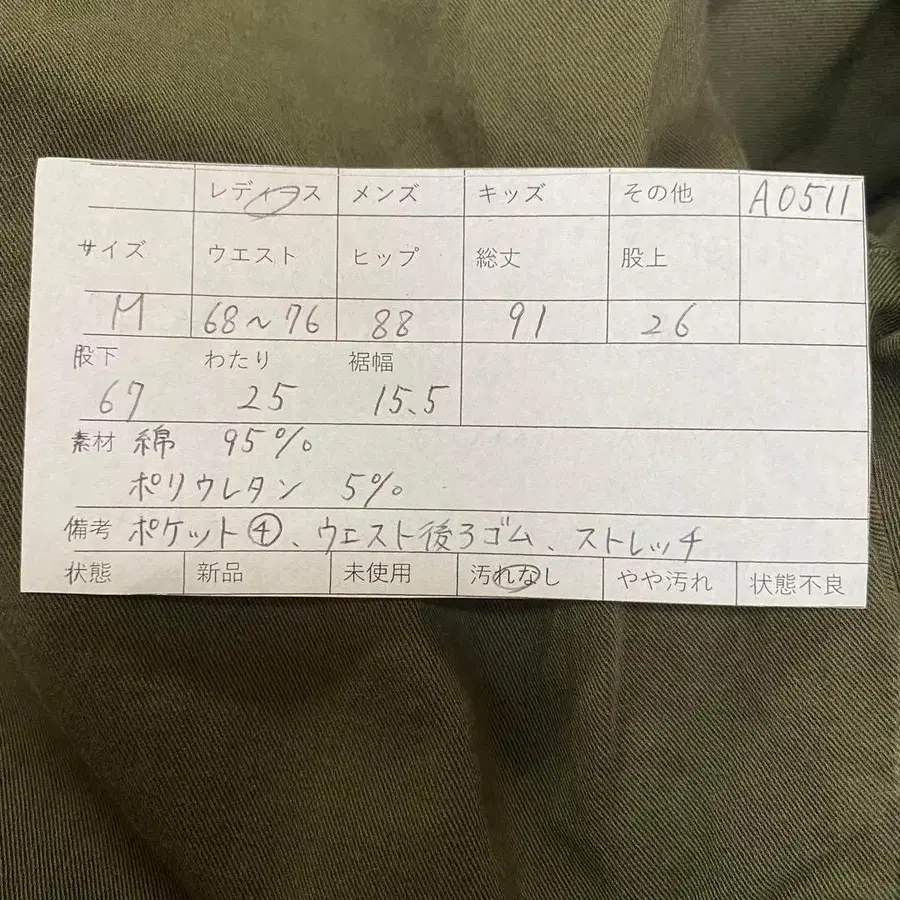 レディース メンズ キッズ その他 A0511
サイズ ウエスト ヒップ 総丈 股上
M 68～76 88 91 26
股下 わたり 裾幅
67 25 15.5
素材 綿 95%
ポリウレタン 5%
備考 ポケット④、ウエスト後ろゴム、ストレッチ
状態 新品 未使用 汚れなし やや汚れ 状態不良